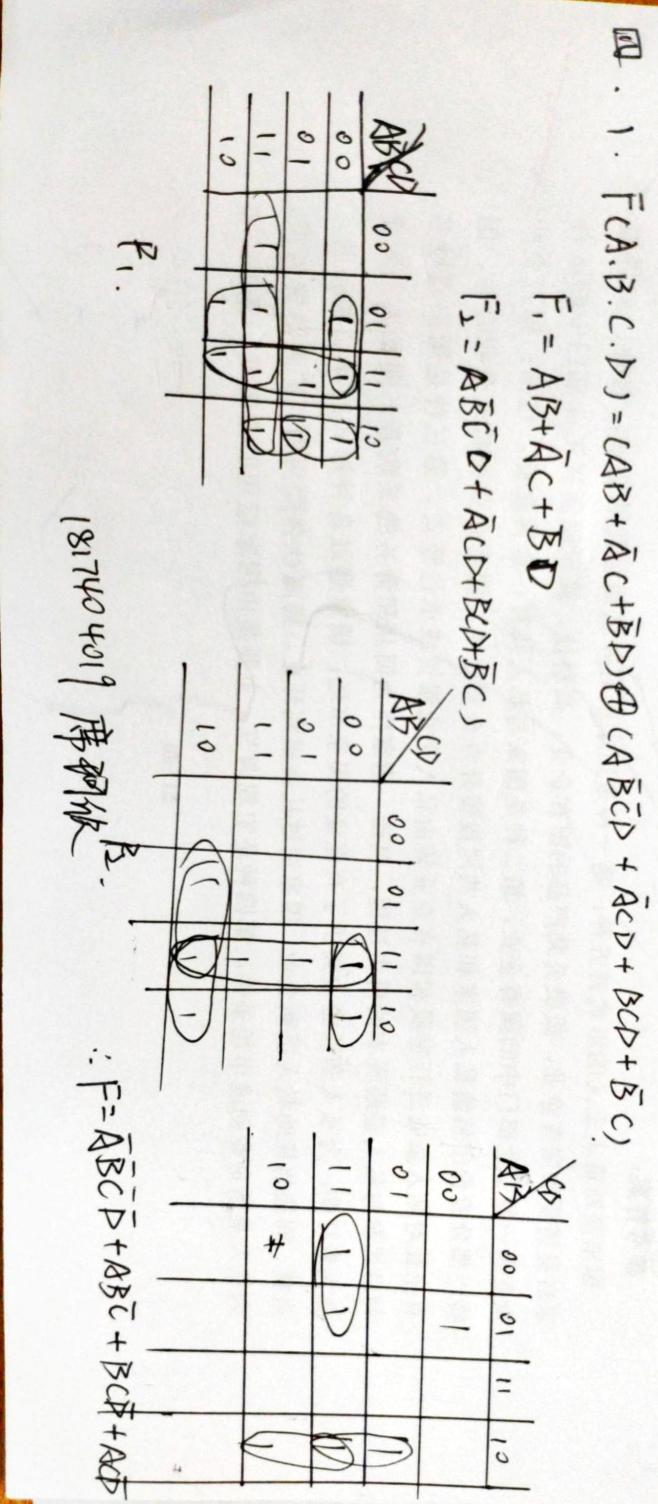 四.1. F(A.B.C.D)=(AB+ĀC+B̄D)⊕(AB̄C̄D+ĀCD+BCD+B̄C)
F₁=AB+ĀC+B̄D
F₂=AB̄C̄D+ĀCD+BCD+B̄C)
AB CD 00 01 11 10
00 1 1 1
01 1 1
11 1 1 1 1
10 1 1
F₁.
AB CD 00 01 11 10
00 1 1
01 1
11 1
10 1 1 1
F₂.
AB CD 00 01 11 10
00 1
01 1
11 1 1 1
10 1
1817404019
∴F=ĀB̄C̄D+ABC̄+BCD̄+ACD̄